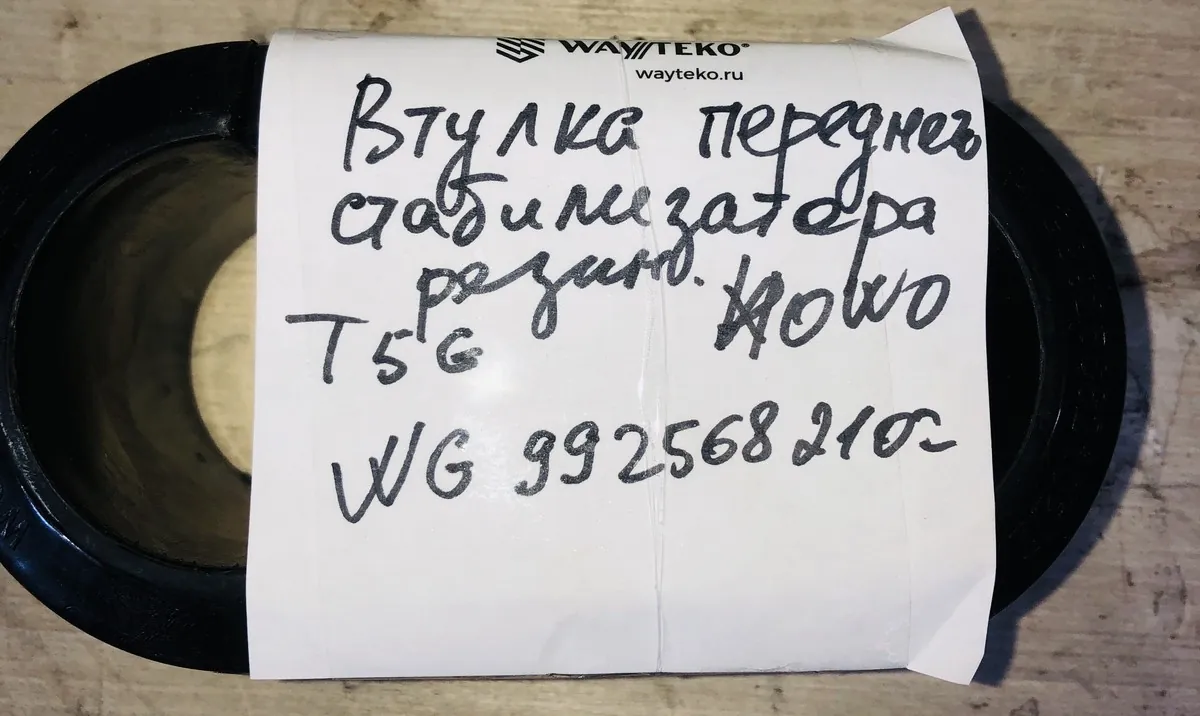 WAYTEKO®
wayteko.ru
Втулка переднего
стабилизатора
резино. HOWO
T5G
WG 9925682102